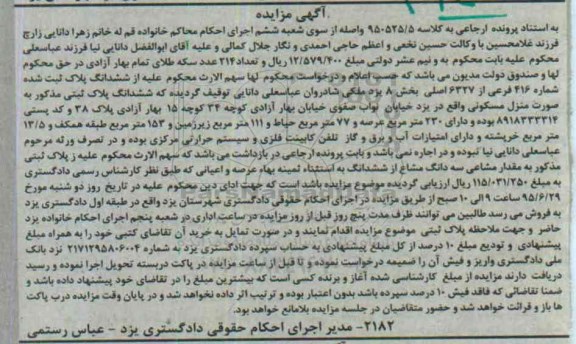 آگهی مزایده
به استناد پرونده ارجاعی به کلاسه ۹۵۰۵۲۵/۵ واصله از سوی شعبه ششم اجرای احکام محاکم خانواده قم له خانم زهرا دانایی زارچ
فرزند غلامحسین با وکالت حسین نخعی و اعظم حاجی احمدی و نگار جلال کمالی و علیه آقای ابوالفضل دانایی نیا فرزند عباسعلی
محکوم علیه بابت محکوم به و نیم عشر دولتی مبلغ ۱۲/۵۷۹/۴۰۰ ریال و تعداد ۲۱۴ عدد سکه طلای تمام بهار آزادی در حق محکوم
لها و صندوق دولت مدیون می باشد که حسب اعلام و درخواست محکوم لها سهم الارث محکوم علیه از ششدانگ پلاک ثبت شده
شماره ۴۱۶ فرعی از ۶۳۲۷ اصلی بخش ۸ یزد ملکی شادروان عباسعلی دانایی توقیف گردیده که ششدانگ پلاک ثبتی مذکور به
صورت منزل مسکونی واقع در یزد خیابان نواب صفوی خیابان بهار آزادی کوچه ۳۴ کوچه ۱۵ بهار آزادی پلاک ۳۸ و کد پستی
۸۹۱۸۳۳۳۳۱۴ بوده و دارای ۲۳۰ متر مربع عرصه و ۷۷ متر مربع حیاط و ۱۱۱ متر مربع زیرزمین و ۱۵۳ متر مربع طبقه همکف و ۱۳/۵
متر مربع خرپشته و دارای امتیازات آب و برق و گاز تلفن کابینت فلزی و سیستم حرارتی مرکزی بوده و در تصرف ورثه مرحوم
عباسعلی دانایی نیا نبوده و در اجاره نمی باشد و بابت پرونده ارجاعی در بازداشت می باشد که سهم الارث محکوم علیه ز پلاک ثبتی
مذکور به مقدار مشاعی سه دانگ مشاع از ششدانگ به استثناء ثمینه بهاء عرصه و اعیانی که طبق نظر کارشناس رسمی دادگستری
به مبلغ ۱۱۵/۰۳۱/۲۵۰ ریال ارزیابی گردیده موضوع مزایده باشد است که جهت ادای دین محکوم علیه در تاریخ روز دو شنبه مورخ
۹۵/۶/۲۹ ساعت ۹ الی ۱۰ صبح از طریق مزایده در اجرای احکام حقوقی دادگستری شهرستان یزد واقع در طبقه اول دادگستری یزد
به فروش می رسد طالبین می توانند ظرف مدت پنج روز قبل از روز مزایده در ساعت اداری در شعبه پنجم اجرای احکام خانواده یزد
حاضر و جهت ملاحظه پلاک ثبتی موضوع مزایده اقدام نمایند و در صورت تمایل به خرید آن تقاضای کتبی خود را به همراه مبلغ
پیشنهادی و تودیع مبلغ ۱۰ درصد از کل مبلغ پیشنهادی به حساب سپرده دادگستری یزد به شماره ۲۱۷۱۲۹۵۸۰۶۰۰۴ نزد بانک
ملی دادگستری واریز و فیش آن را ضمیمه درخواست نموده و تا قبل از ساعت مزایده در پاکت دربسته تحویل اجرا نموده و رسید
دریافت دارند مزایده از مبلغ کارشناسی شده آغاز و برنده کسی است که بیشترین مبلغ را در تقاضای خود پیشنهاد داده باشد و
ضمنا تقاضائی که فاقد فیش ۱۰ درصد سپرده باشد بدون اعتبار بوده و ترتیب اثر داده نخواهد شد و در پایان وقت مزایده درب پاکت
ها باز و قرائت خواهد شد و حضور متقاضیان در جلسه مزایده بلامانع خواهد بود.
۲۱۸۲- مدیر اجرای احکام حقوقی دادگستری یزد - عباس رستمی